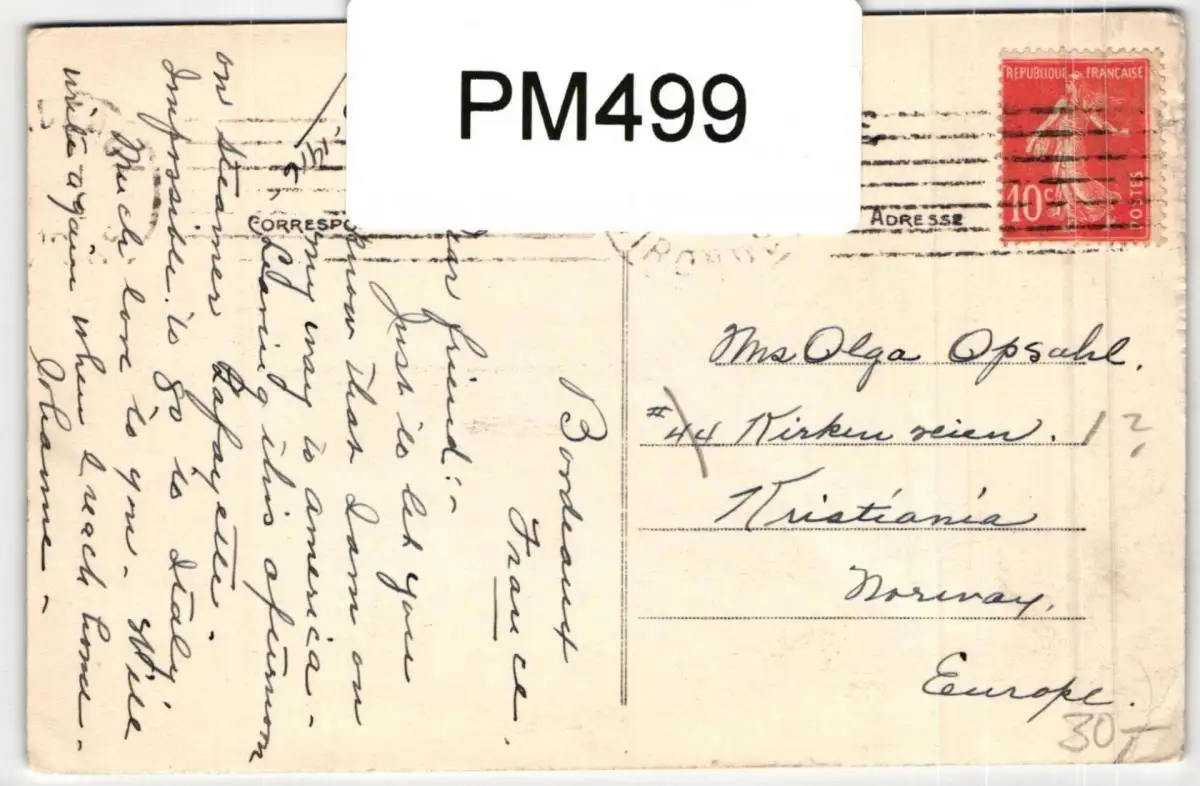 PM499
REPUBLIQUE FRANÇAISE
10c
POSTES
CORRESPO
ADRESSE
Bordeaux
France.
ear friend:-
Just to let you
know that I am on
my way to America-
Leaving this afternoon
on Steamer Lafayette.
Impossible to go to Italy
Much love to you- Will
write again when I reach home-
Johanne-
Mrs Olga Opsahl.
#44 Kirkeveien. 1?
Kristiania
Norway.
Europe.
30